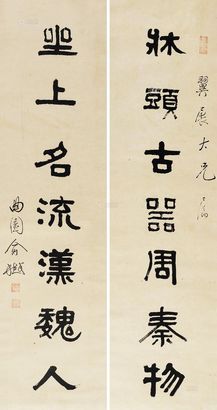 翼展大兄
牀頭古器周秦物
坐上名流漢魏人
曲園俞樾